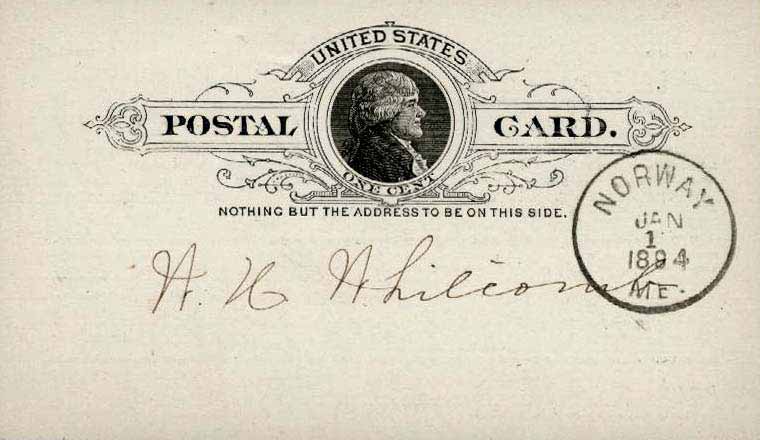 UNITED STATES
POSTAL CARD.
ONE CENT
NOTHING BUT THE ADDRESS TO BE ON THIS SIDE.
NORWAY
JAN
1
1894
ME.
H. H. Whitcomb